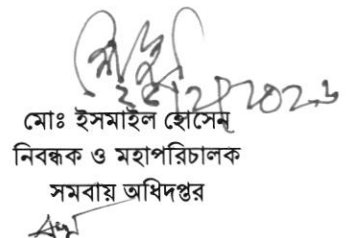 মোঃ ইসমাইল হোসেন
নিবন্ধক ও মহাপরিচালক
সমবায় অধিদপ্তর